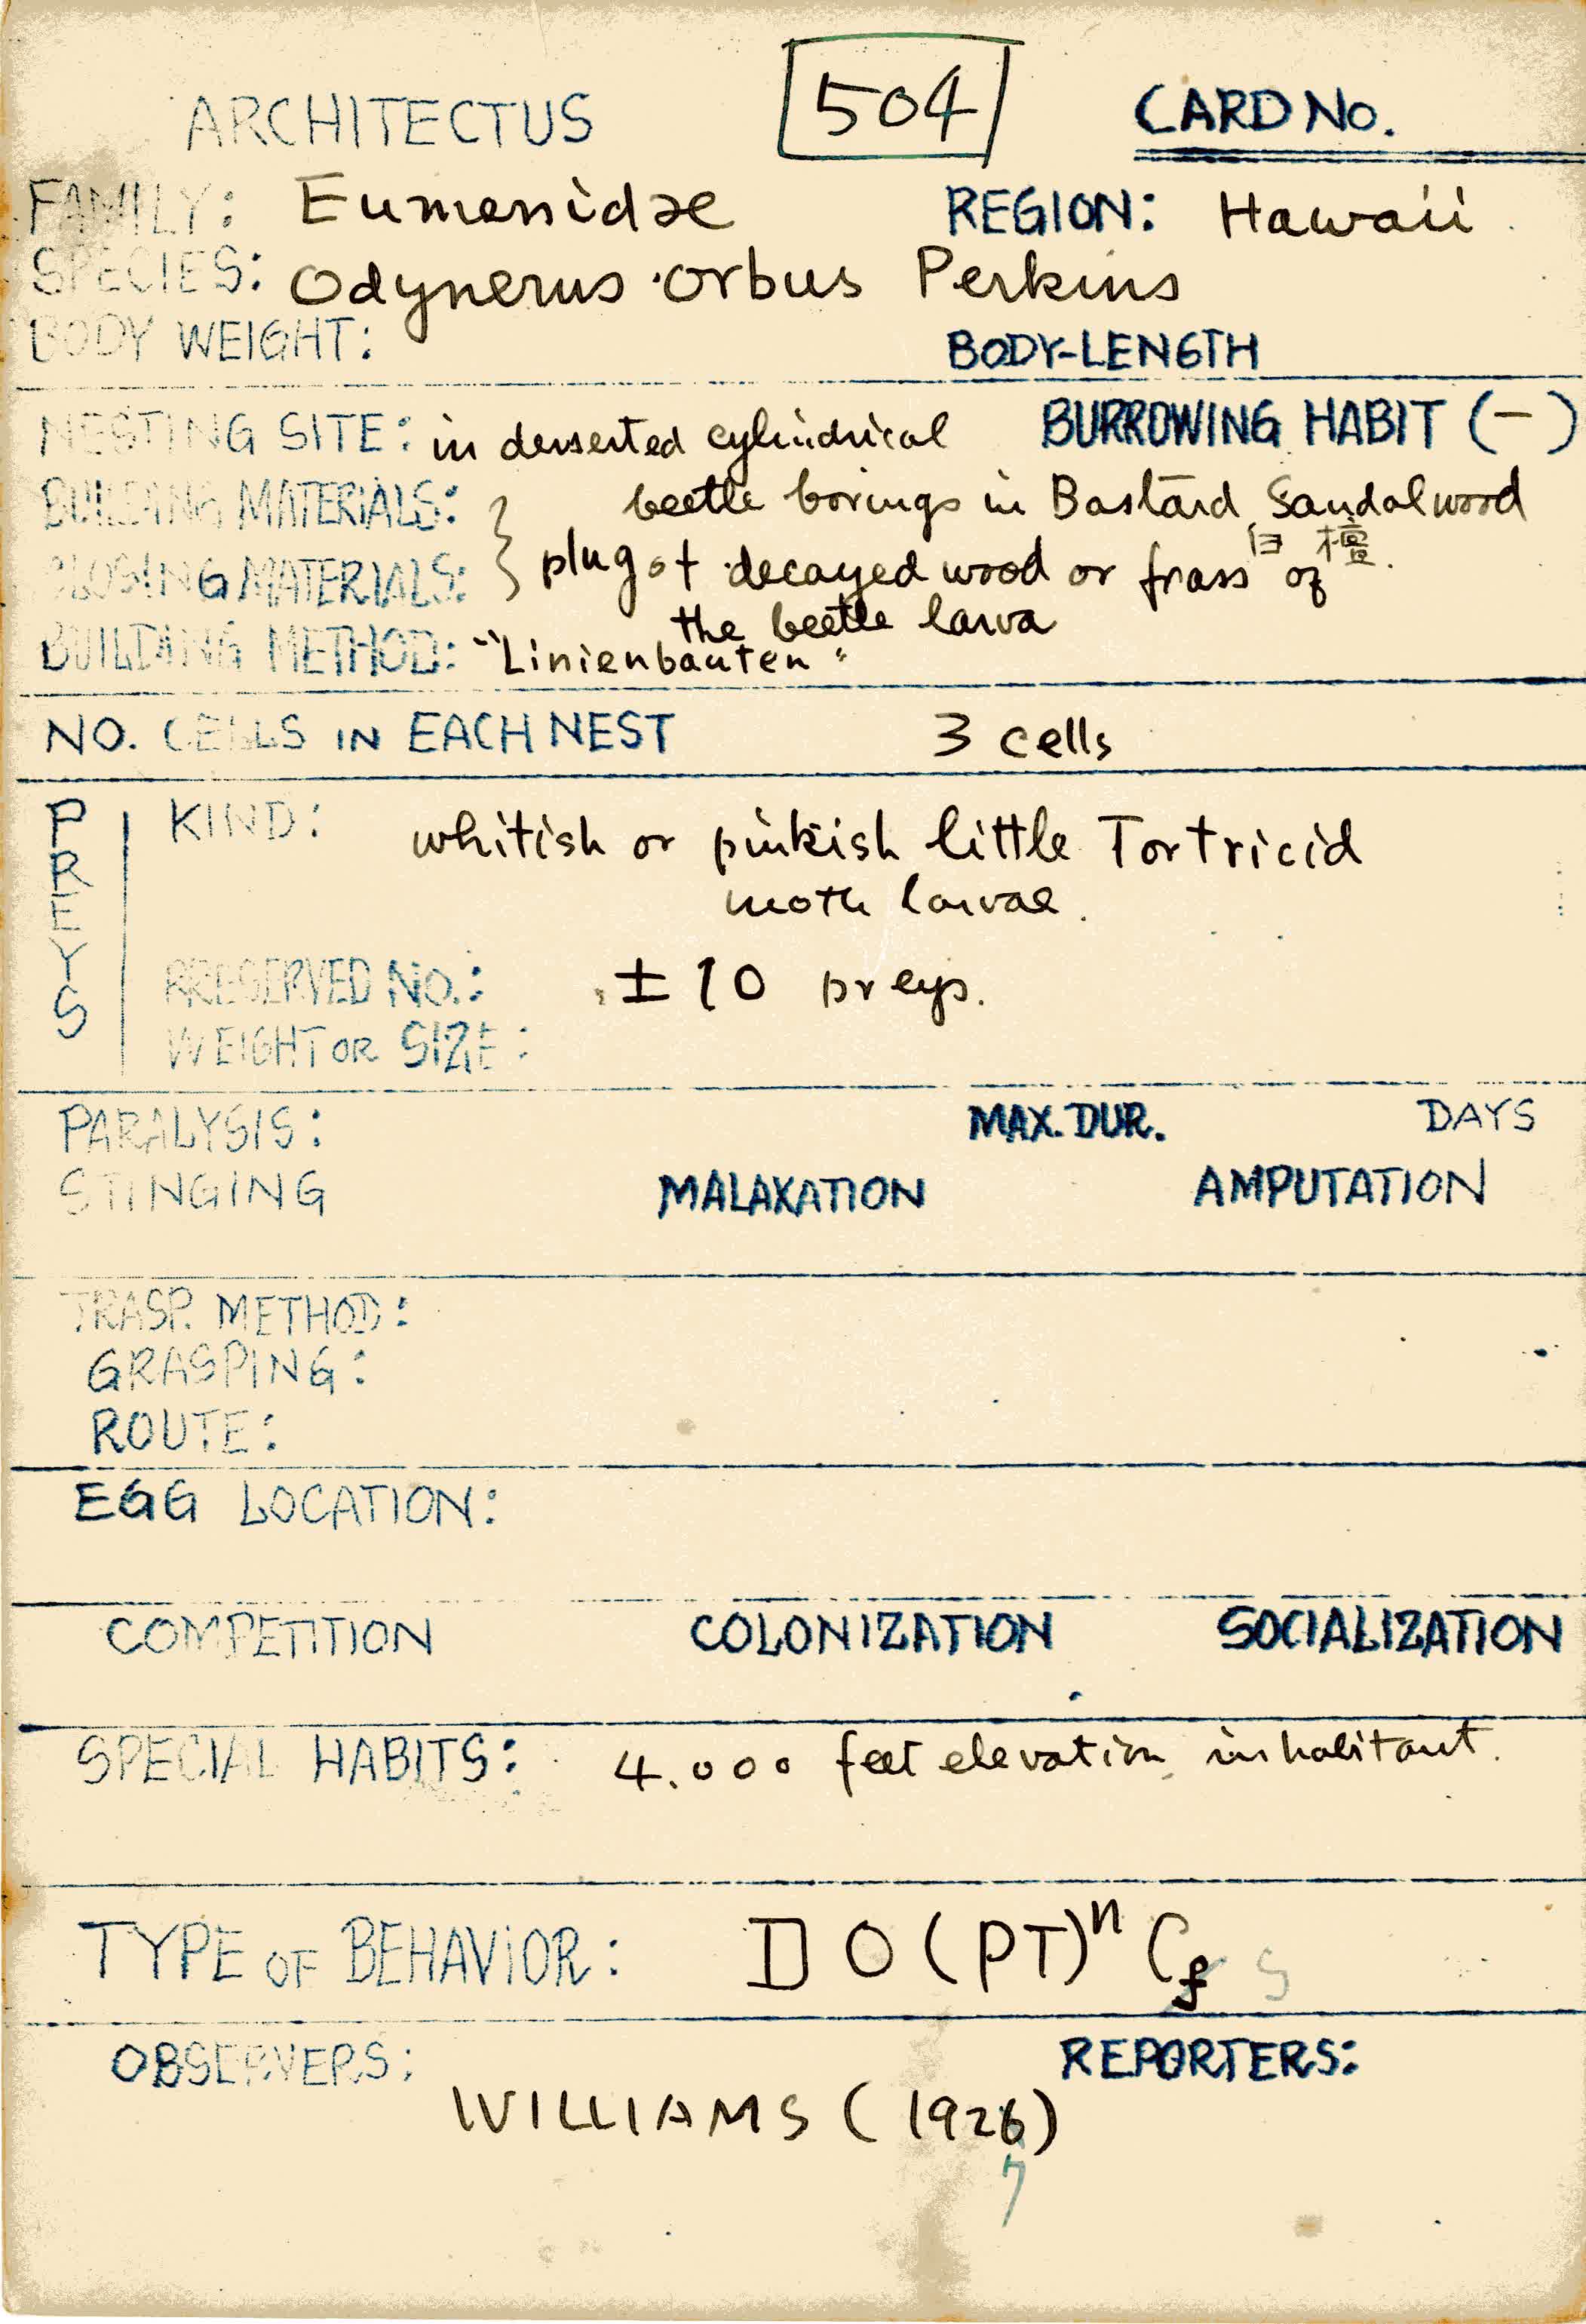 ARCHITECTUS 504 CARD NO.
FAMILY: Eumenidae REGION: Hawaii
SPECIES: Odynerus orbus Perkins
BODY WEIGHT: BODY-LENGTH
NESTING SITE: in derserted cylindrical BURROWING HABIT (-)
beetle borings in Bastard Sandalwood
白檀.
BUILDING MATERIALS:
CLOSING MATERIALS: } plug of decayed wood or frass of
the beetle larva
BUILDING METHOD: "Linienbauten"
NO. CELLS IN EACH NEST 3 cells
PREYS
KIND: whitish or pinkish little Tortricid
moth larvae.
PRESERVED NO.: ±10 preys.
WEIGHT OR SIZE:
PARALYSIS: MAX. DUR. DAYS
STINGING MALAXATION AMPUTATION
TRASP. METHOD:
GRASPING:
ROUTE:
EGG LOCATION:
COMPETITION COLONIZATION SOCIALIZATION
SPECIAL HABITS: 4.000 feet elevation inhabitant.
TYPE OF BEHAVIOR: ID O (PT)ⁿ Cf S
OBSERVERS: REPORTERS:
WILLIAMS (1926)
7